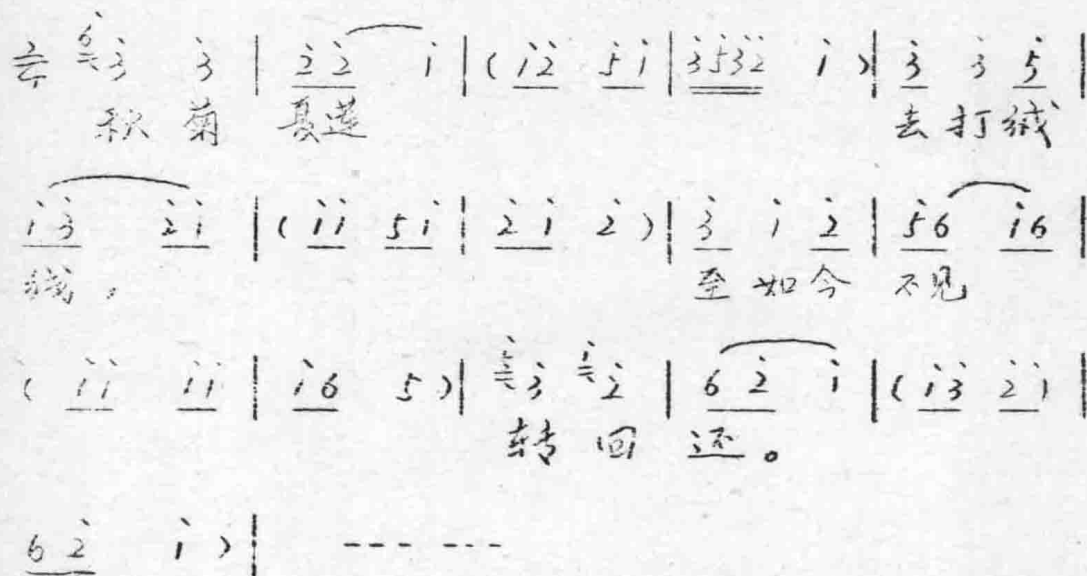 2/4 6 3̇ 3̇ | 2̇ 2̇ 1̇ | ( 1̇ 2̇ 5 1̇ | 3̇ 5̇ 3̇ 2̇ 1̇ ) | 3̇ 3̇ 5̇ |
秋 菊 夏莲 去 打 绒
1̇ 3̇ 2̇ 1̇ | ( 1̇ 1̇ 5 1̇ | 2̇ 1̇ 2̇ ) | 3̇ 1̇ 2̇ | 5̇ 6 1̇ 6 |
线， 至 如 今 不见
( 1̇ 1̇ 1̇ 1̇ | 1̇ 6 5 ) | 3̇ 2̇ | 6 2̇ 1̇ | ( 1̇ 3̇ 2̇ 1̇ |
转 回 还。
6 2̇ 1̇ ) | --- ---